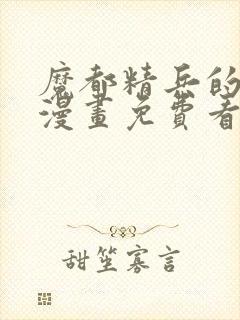 魔都精兵的
漫畫免費看
甜笙寡言